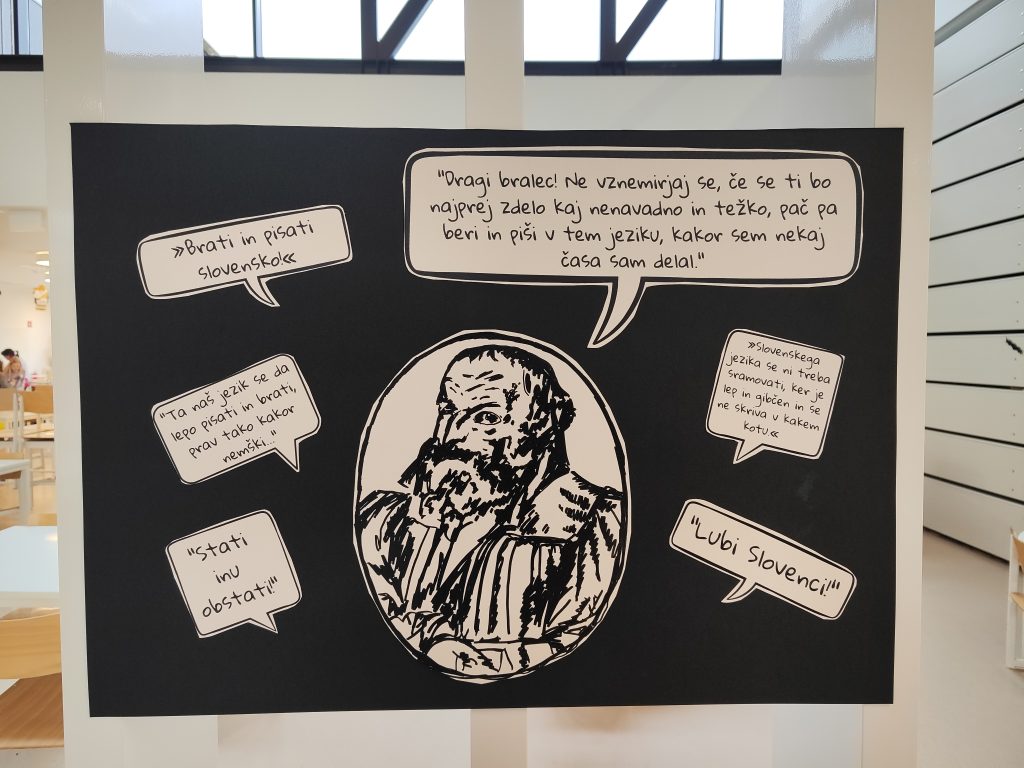 »Brati in pisati
slovensko!«
"Dragi bralec! Ne vznemirjaj se, če se ti bo
najprej zdelo kaj nenavadno in težko, pač pa
beri in piši v tem jeziku, kakor sem nekaj
časa sam delal."
"Ta naš jezik se da
lepo pisati in brati,
prav tako kakor
nemški..."
»Slovenskega
jezika se ni treba
sramovati, ker je
lep in gibčen in se
ne skriva v kakem
kotu.«
"Stati
inu
obstati!"
"Lubi Slovenci!"